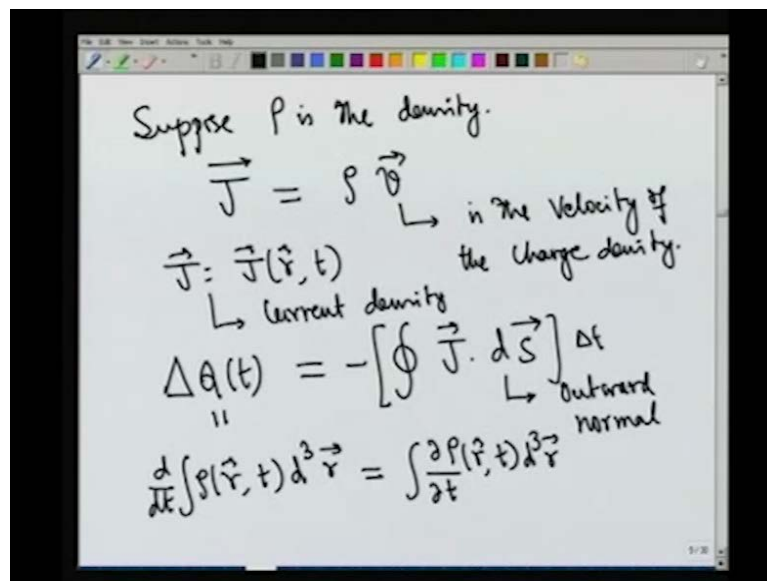 File Edit View Insert Actions Tools Help
Suppose ρ is the density.
J⃗ = ρ v⃗
↳ is the velocity of
the charge density.
J⃗ = J⃗(r⃗, t)
↳ Current density
ΔQ(t) = -[∮ J⃗ · dS⃗] Δt
↳ outward
normal
||
d/dt ∫ρ(r⃗, t) d³r⃗ = ∫ ∂ρ/∂t (r⃗, t) d³r⃗